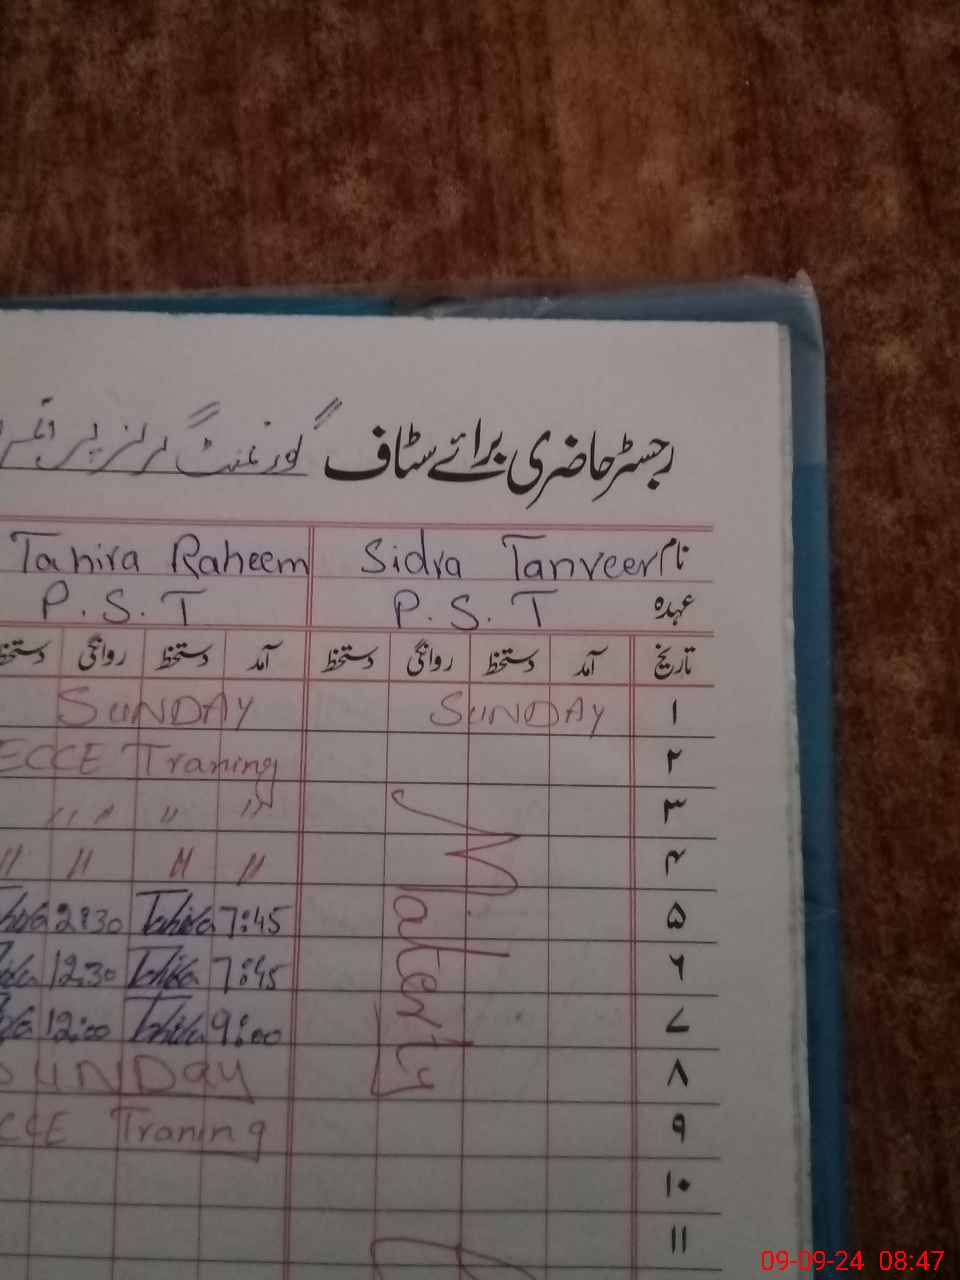 رجسٹر حاضری برائے سٹاف گورنمنٹ گرلز پرائمری
نام Sidra Tanveer Tahira Raheem
عہدہ P.S.T P.S.T
تاریخ آمد دستخط روانگی دستخط آمد دستخط روانگی دستخط
۱ SUNDAY SUNDAY
۲ ECCE Traning
۳ " " " "
۴ " " " "
Materty
۵ 7:45 Tahira 2:30
۶ 7:45 Tahira 12:30
۷ 9:00 Tahira 12:00
۸ SUNDay
۹ Traning
۱۰
۱۱
09-09-24 08:47